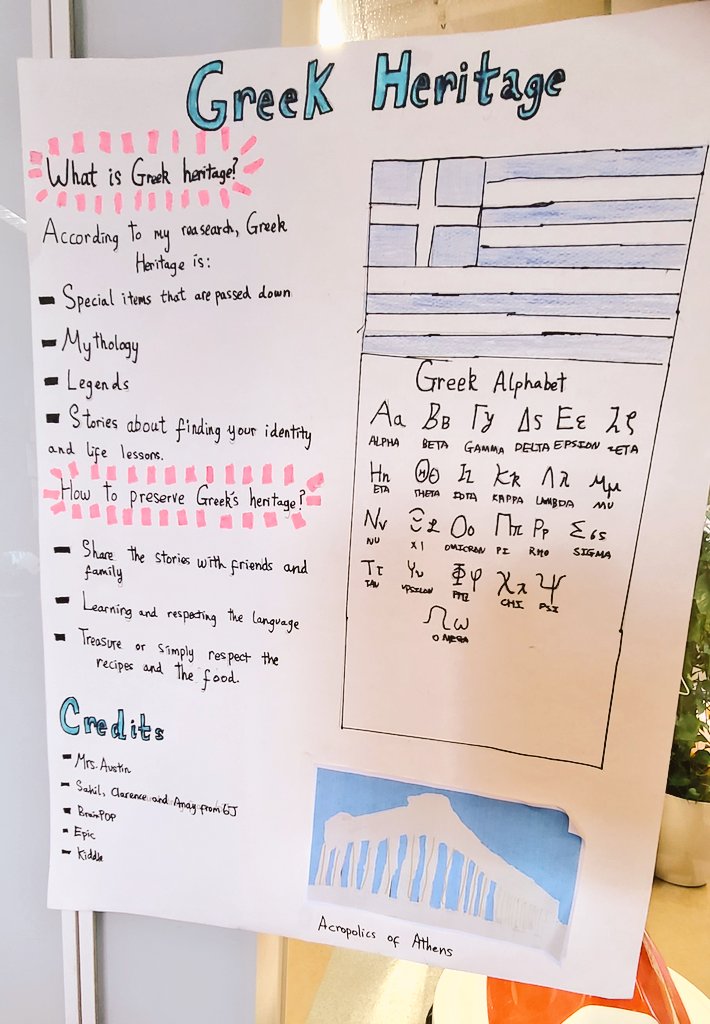 Greek Heritage
What is Greek heritage?
According to my reasearch, Greek
Heritage is:
Special items that are passed down
Mythology
Legends
Stories about finding your identity
and life lessons.
How to preserve Greek's heritage?
Share the stories with friends and
family
Learning and respecting the language
Treasure or simply respect the
recipes and the food.
Credits
Mrs. Austin
Sahil, Clarence and Anay from 6J
BrainPOP
Epic
Kiddle
Greek Alphabet
Αα Ββ Γγ Δδ Εε Ζζ
ALPHA BETA GAMMA DELTA EPSION ZETA
Ηη Θθ Ιι Κκ Λλ Μμ
ETA THETA IOTA KAPPA LAMBDA MU
Νν Ξξ Οο Ππ Ρρ Σσς
NU XI OMICRON PI RHO SIGMA
Ττ Υυ Φφ Χχ Ψ
TAU UPSILON PHI CHI PSI
Ωω
OMEGA
Acropolics of Athens